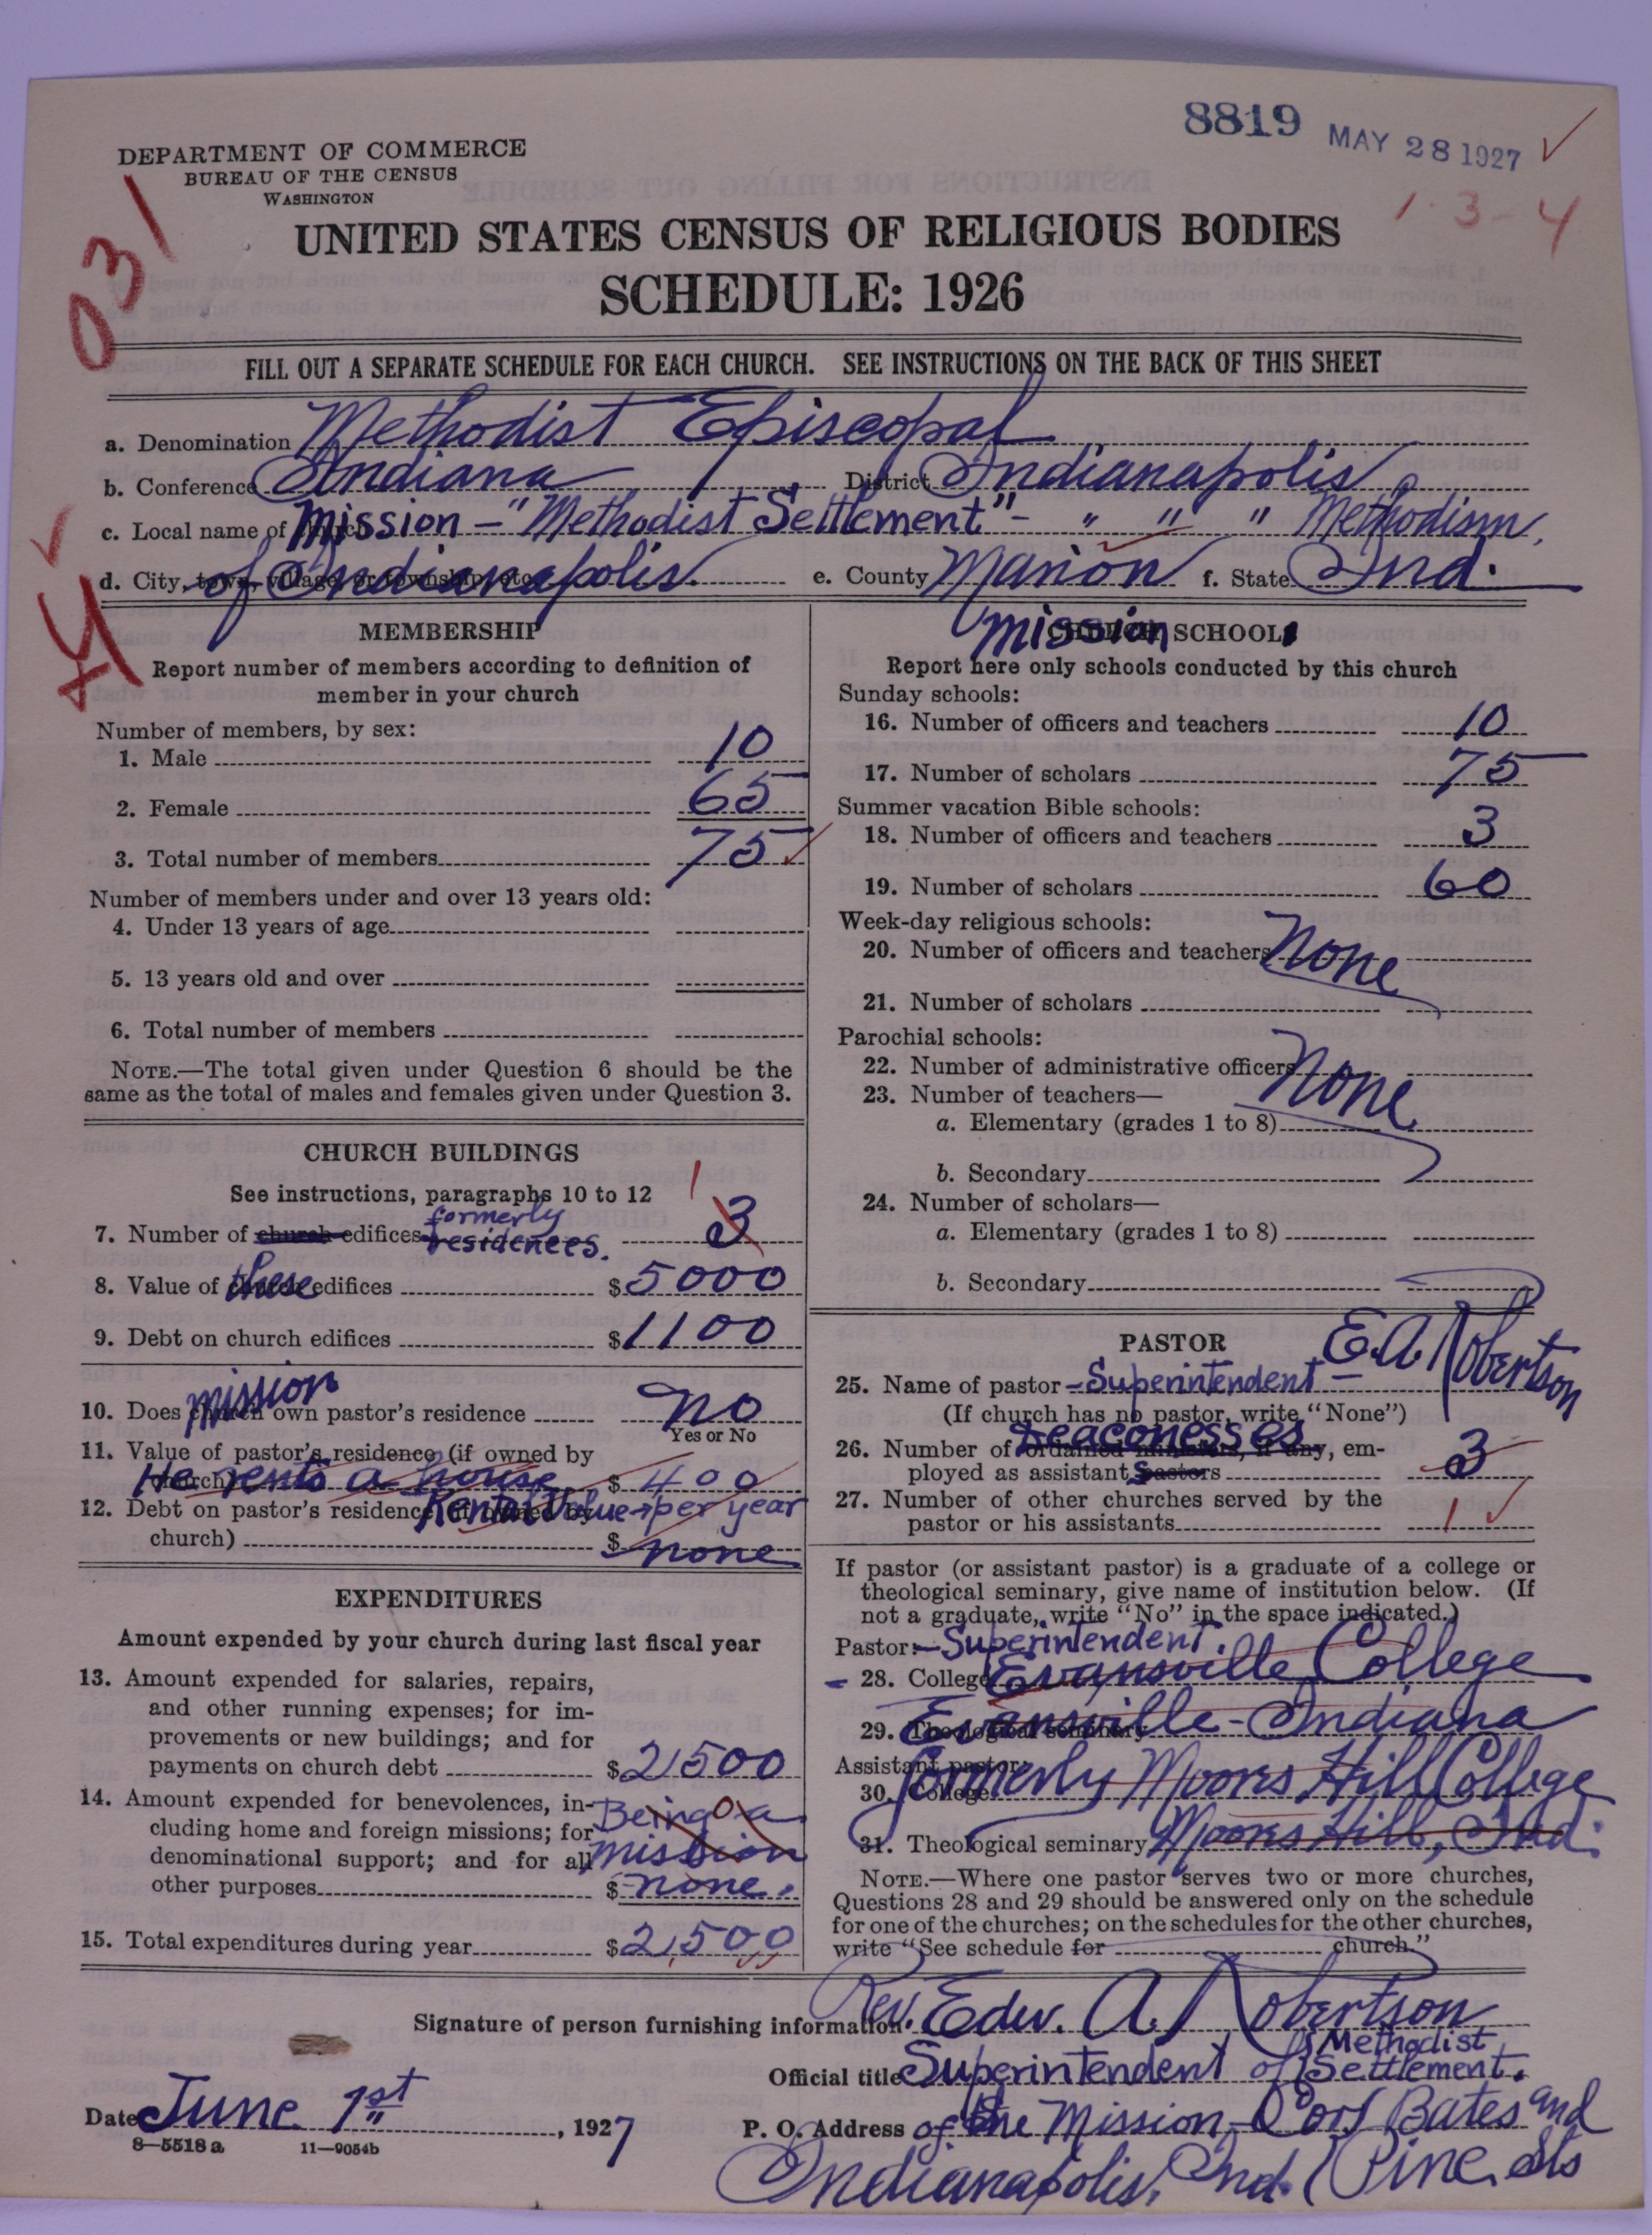 8819 MAY 28 1927 ✓
DEPARTMENT OF COMMERCE
BUREAU OF THE CENSUS
WASHINGTON
1 - 3 - 4
031
UNITED STATES CENSUS OF RELIGIOUS BODIES
SCHEDULE: 1926
FILL OUT A SEPARATE SCHEDULE FOR EACH CHURCH. SEE INSTRUCTIONS ON THE BACK OF THIS SHEET
a. Denomination Methodist Episcopal
b. Conference Indiana District Indianapolis
c. Local name of church Mission - "Methodist Settlement" - " " " Methodism,
d. City, town, village, or township, etc. of Indianapolis. e. County Marion f. State Ind.
MEMBERSHIP
Report number of members according to definition of
member in your church
Number of members, by sex:
1. Male 10
2. Female 65
3. Total number of members 75
Number of members under and over 13 years old:
4. Under 13 years of age
5. 13 years old and over
6. Total number of members
NOTE.—The total given under Question 6 should be the
same as the total of males and females given under Question 3.
CHURCH BUILDINGS
See instructions, paragraphs 10 to 12
7. Number of church edifices formerly residences. 3 1
8. Value of these edifices $5000
9. Debt on church edifices $1100
10. Does mission own pastor's residence No
Yes or No
11. Value of pastor's residence (if owned by
church) He rents a house $400
12. Debt on pastor's residence (if owned by Rental Value → per year
church) $none
EXPENDITURES
Amount expended by your church during last fiscal year
13. Amount expended for salaries, repairs,
and other running expenses; for im-
provements or new buildings; and for
payments on church debt $2,500
14. Amount expended for benevolences, in- Being a
cluding home and foreign missions; for
denominational support; and for all mission
other purposes $none.
15. Total expenditures during year $2,500
Mission CHURCH SCHOOLS
Report here only schools conducted by this church
Sunday schools:
16. Number of officers and teachers 10
17. Number of scholars 75
Summer vacation Bible schools:
18. Number of officers and teachers 3
19. Number of scholars 60
Week-day religious schools:
20. Number of officers and teachers None
21. Number of scholars
Parochial schools:
22. Number of administrative officers None
23. Number of teachers—
a. Elementary (grades 1 to 8)
b. Secondary
24. Number of scholars—
a. Elementary (grades 1 to 8)
b. Secondary
PASTOR
25. Name of pastor - Superintendent - E.A. Robertson
(If church has no pastor, write "None")
26. Number of ordained ministers, if any, em- Deaconesses
ployed as assistants pastors 3
27. Number of other churches served by the
pastor or his assistants 1
If pastor (or assistant pastor) is a graduate of a college or
theological seminary, give name of institution below. (If
not a graduate, write "No" in the space indicated.)
Pastor: - Superintendent.
28. College Evansville College
29. Theological seminary Evansville - Indiana
Assistant pastor:
30. College formerly Moores Hill College
31. Theological seminary Moores Hill, Ind.
NOTE.—Where one pastor serves two or more churches,
Questions 28 and 29 should be answered only on the schedule
for one of the churches; on the schedules for the other churches,
write "See schedule for church."
Signature of person furnishing information Rev. Edw. A. Robertson
Official title Superintendent of Methodist Settlement.
Date June 1st, 1927 P. O. Address of the Mission, Cor. Bates and
8—5518 a 11—9054b
Indianapolis, Ind. Pine Sts